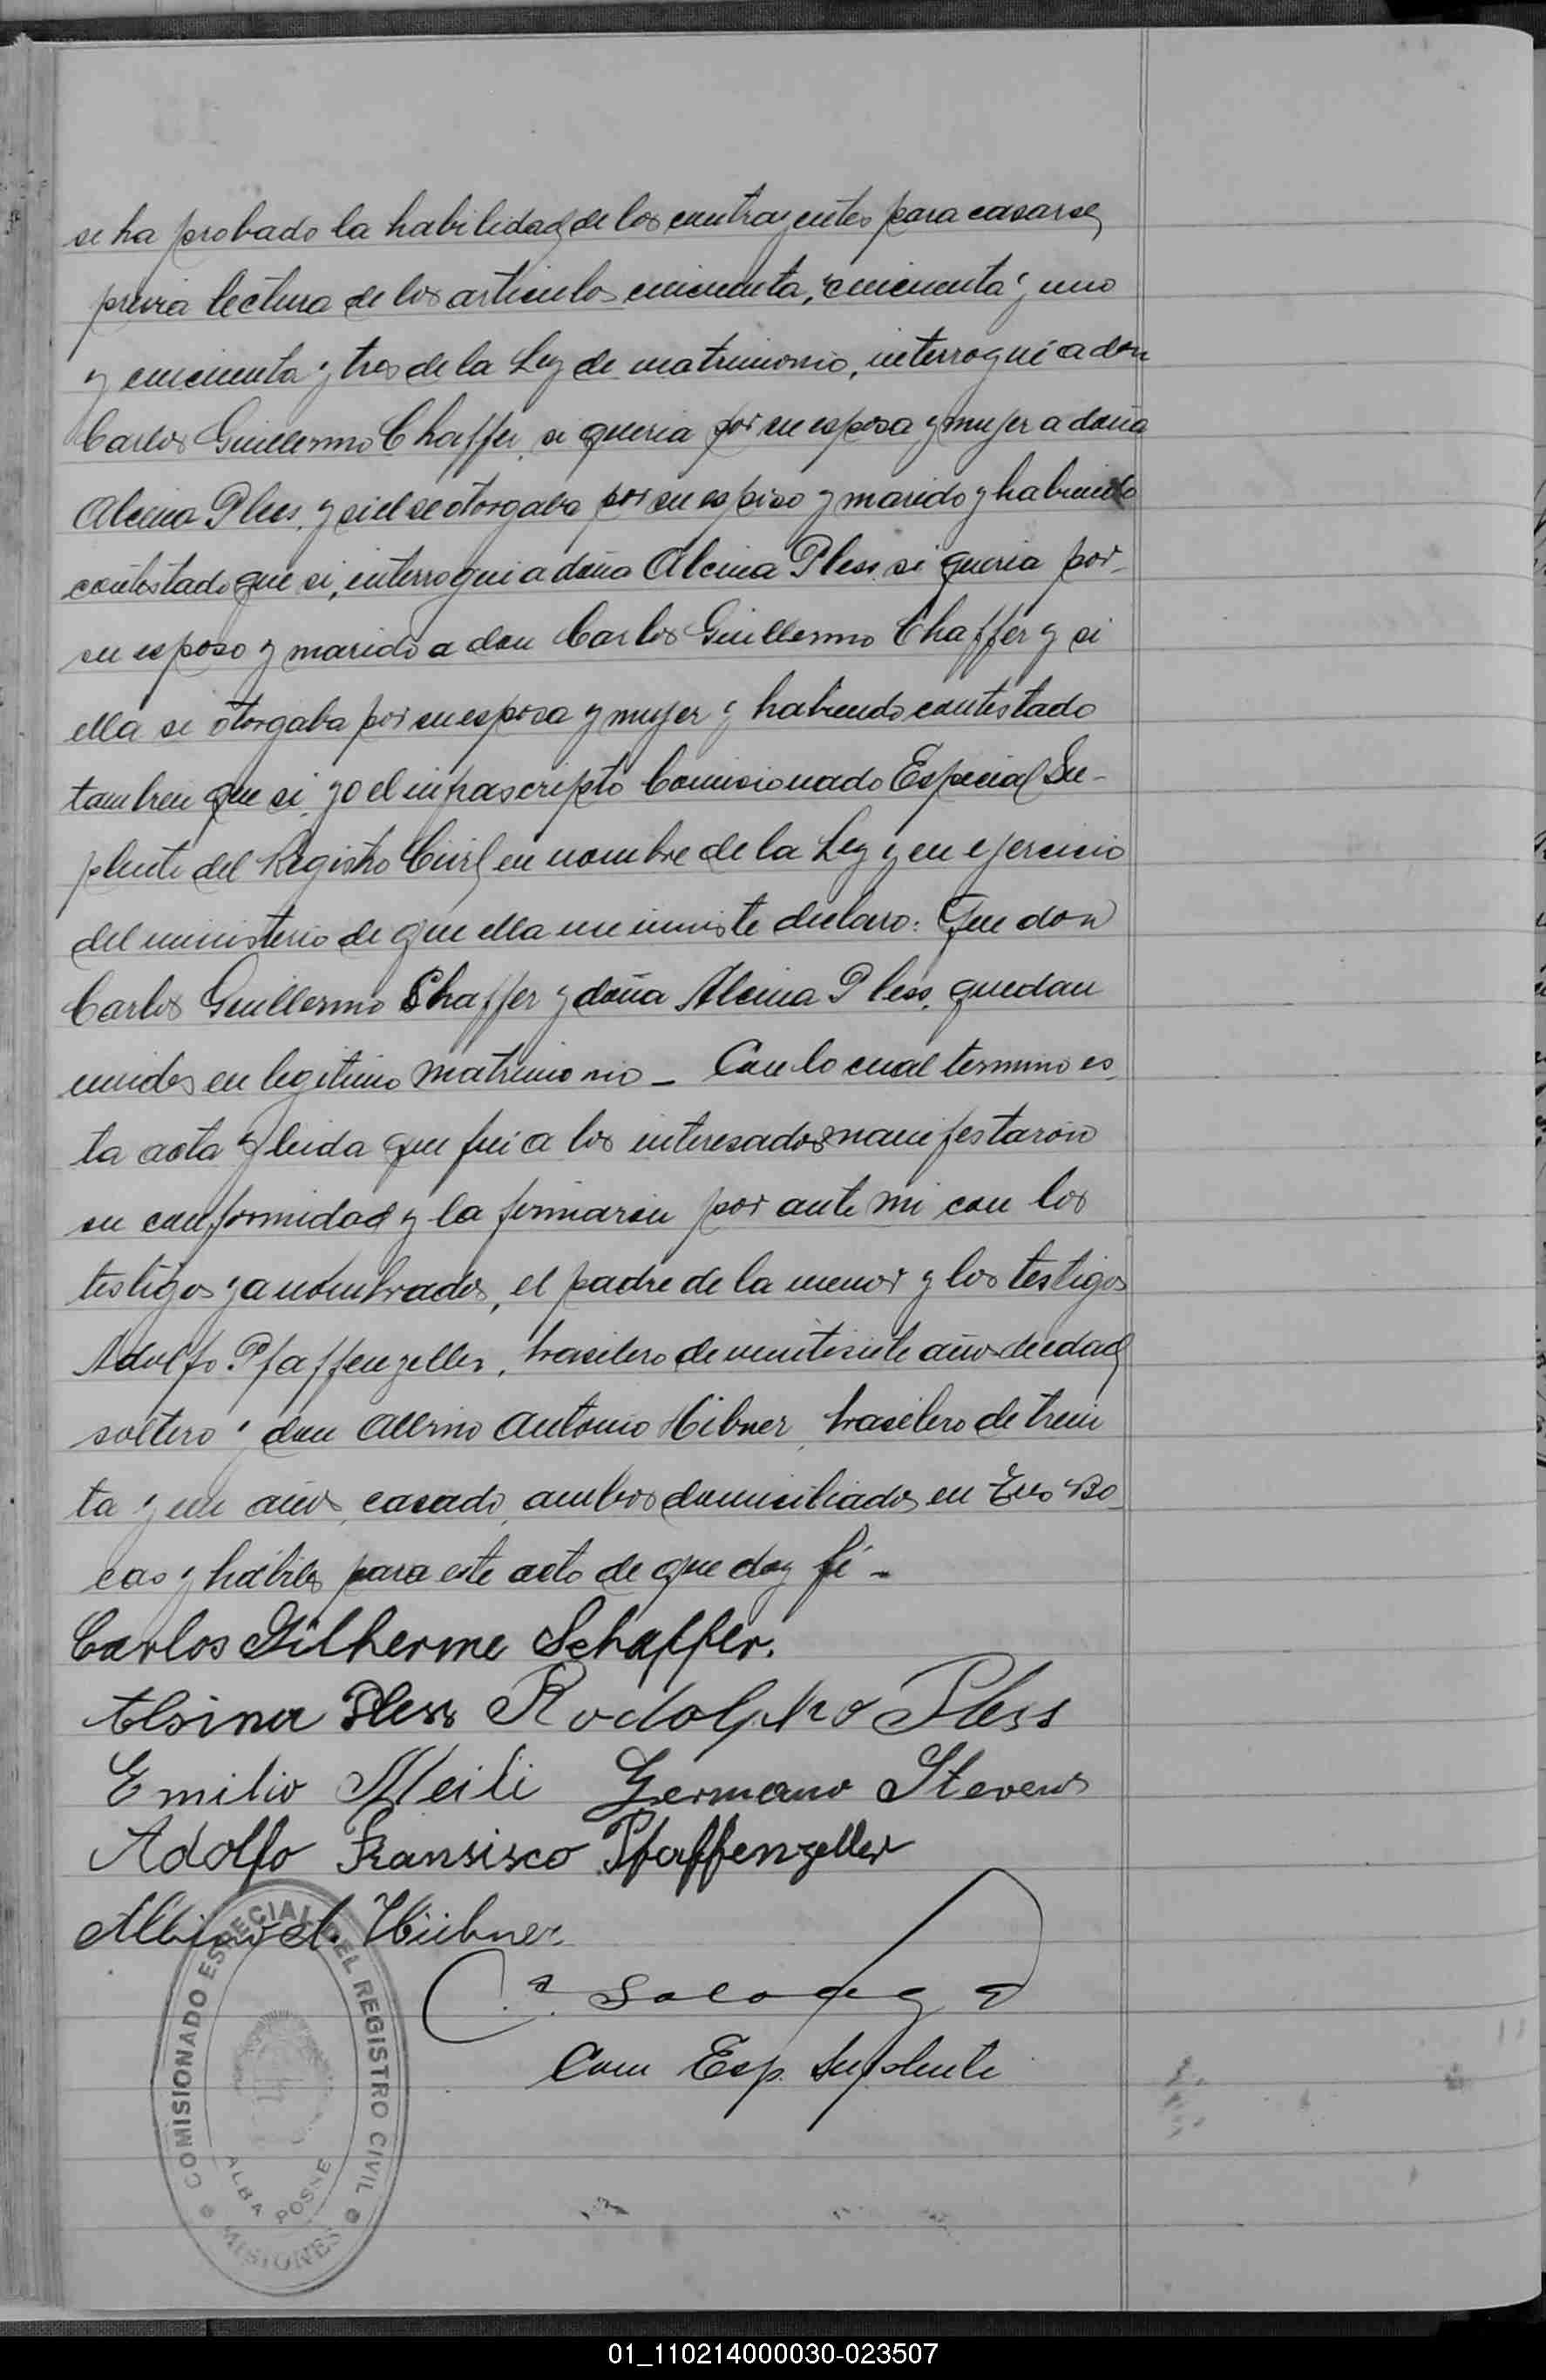 se ha probado la habilidad de los contrayentes para casarse,
previa lectura de los articulos cincuenta, cincuenta y uno
y cincuenta y tres de la Ley de matrimonio, interrogué a don
Carlos Guillermo Chaffer, si queria por su esposa y mujer a doña
Alcina Pless, y si el se otorgaba por su esposo y marido y habiendo
contestado que si, interrogué a doña Alcina Pless, si queria por
su esposo y marido a don Carlos Guillermo Chaffer y si
ella se otorgaba por su esposa y mujer y habiendo contestado
tambien que si, yo el infrascripto Comisionado Especial Su-
plente del Registro Civil en nombre de la Ley y en ejercicio
del ministerio de que ella me inviste declaro: Que don
Carlos Guillermo Shaffer y doña Alcina Pless, quedan
unidos en legitimo matrimonio - Con lo cual termino es
ta acta y leida que fué a los interesados manifestaron
su conformidad y la firmaron por ante mi con los
testigos ya nombrados, el padre de la menor y los testigos
Adolfo Pfaffenzeller, brasilero de veintisiete años de edad
soltero y don Albino Antonio Hibner, brasilero de trein
ta y un años, casado, ambos domiciliados en Tres Bo
cas y habiles para este acto de que doy fé -
Carlos Gilherme Schaffer.
Alsina Pless Rodolpho Pless
Emilio Meili Germano Stevens
Adolfo Fransisco Pfaffenzeller
Albino A. Hübner
Com Esp. Suplente
COMISIONADO ESPECIAL DEL REGISTRO CIVIL
ALBA POSSE
MISIONES
01_110214000030-023507